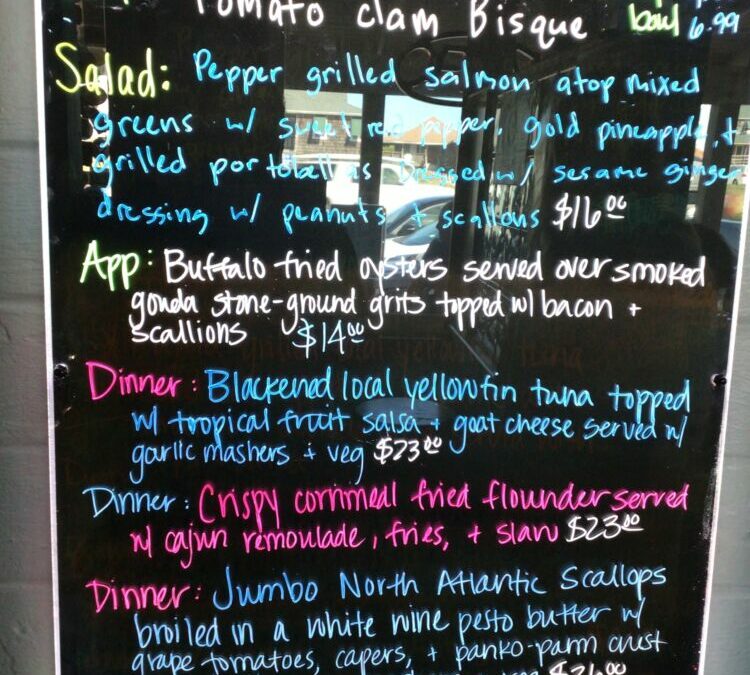 Tomato Clam Bisque bowl 6.99
Salad: Pepper grilled salmon atop mixed
greens w/ sweet red pepper, gold pineapple, +
grilled portobellas dressed w/ sesame ginger
dressing w/ peanuts + scallions $16.00
App: Buffalo fried oysters served over smoked
gouda stone-ground grits topped w/ bacon +
scallions $14.00
Dinner: Blackened local yellowfin tuna topped
w/ tropical fruit salsa + goat cheese served w/
garlic mashers + veg $23.00
Dinner: Crispy cornmeal fried flounder served
w/ cajun remoulade, fries, + slaw $23.00
Dinner: Jumbo North Atlantic Scallops
broiled in a white wine pesto butter w/
grape tomatoes, capers, + panko-parm crust
$26.00